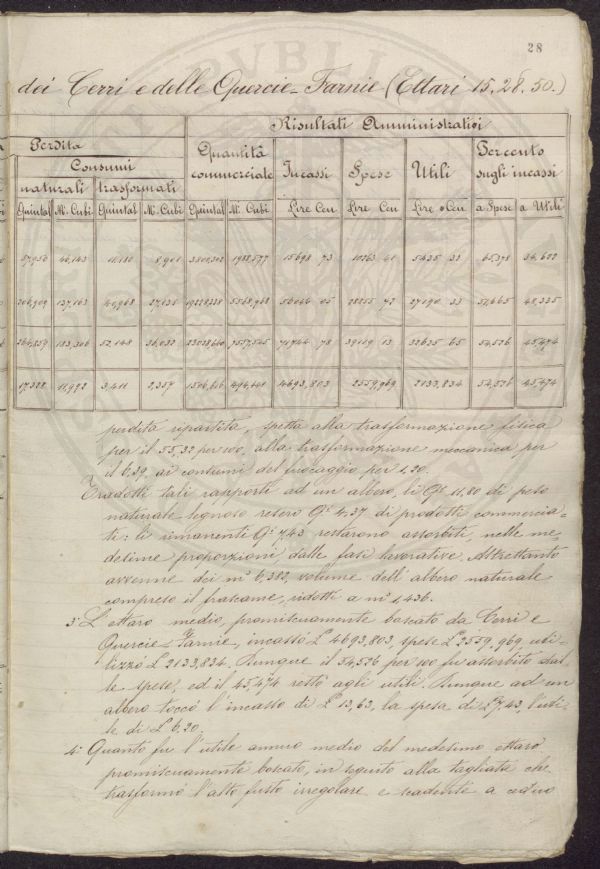 28
dei Cerri e delle Quercie-Farnie (Ettari 15.28.50.)
Perdita
Risultati Amministrativi
Consumi
Quantità commerciale
Incassi
Spese
Utili
Percento sugli incassi
naturali
trasformati
Quintal
Mi Cubi
Quintal
Mi Cubi
Quintal
Mi Cubi
Lire Cen
Lire Cen
Lire Cen
a Spese
a Utili
46,143 11,180 8,901 1988,577 15698 73 10263 41 5435 32 65,378 34,622
137,163 40,968 27,131 5568,968 56046 05 28855 72 27190 33 51,665 48,335
264,859 183,306 52,148 36,032 7557,545 71744 78 39119 13 32625 65 54,526 45,474
17,322 11,992 3,411 2,357 1506,616 494,441 4693,803 2559,969 2133,834 54,526 45,474
perdita ripartita, spetta alla trasformazione fisica
per il 55,32 per 100, alla trasformazione meccanica per
il 6,29, ai consumi del focaggio per 1,20.
Tradotti tali rapporti ad un albero, li Qi 11,80 di peso
naturale legnoso resero Qi 4,37 di prodotti commercia-
ti: li rimanenti Qi 7,43 restarono assorbiti, nelle me-
desime proporzioni, dalle fasi lavorative. Altrettanto
avvenne dei mi 6,383, volume dell'albero naturale
compreso il frascame, ridotti a mi 1,436.
3° L'ettaro medio, promiscuamente boscato da Cerri e
Quercie-Farnie, incassò Le 4693,803, spese Le 2559,969, uti-
lizzò L 2133,834. Dunque il 54,526 per 100 fu assorbito dal-
le spese, ed il 45,474 restò agli utili. Dunque ad un
albero toccò l'incasso di Le 13,63, la spesa di Le 7,43, l'uti-
le di Le 6,20.
4° Quanto fu l'utile annuo medio del medesimo ettaro
promiscuamente boscato, in seguito alla tagliata che
trasformò l'alto fusto irregolare e scadente a ceduo